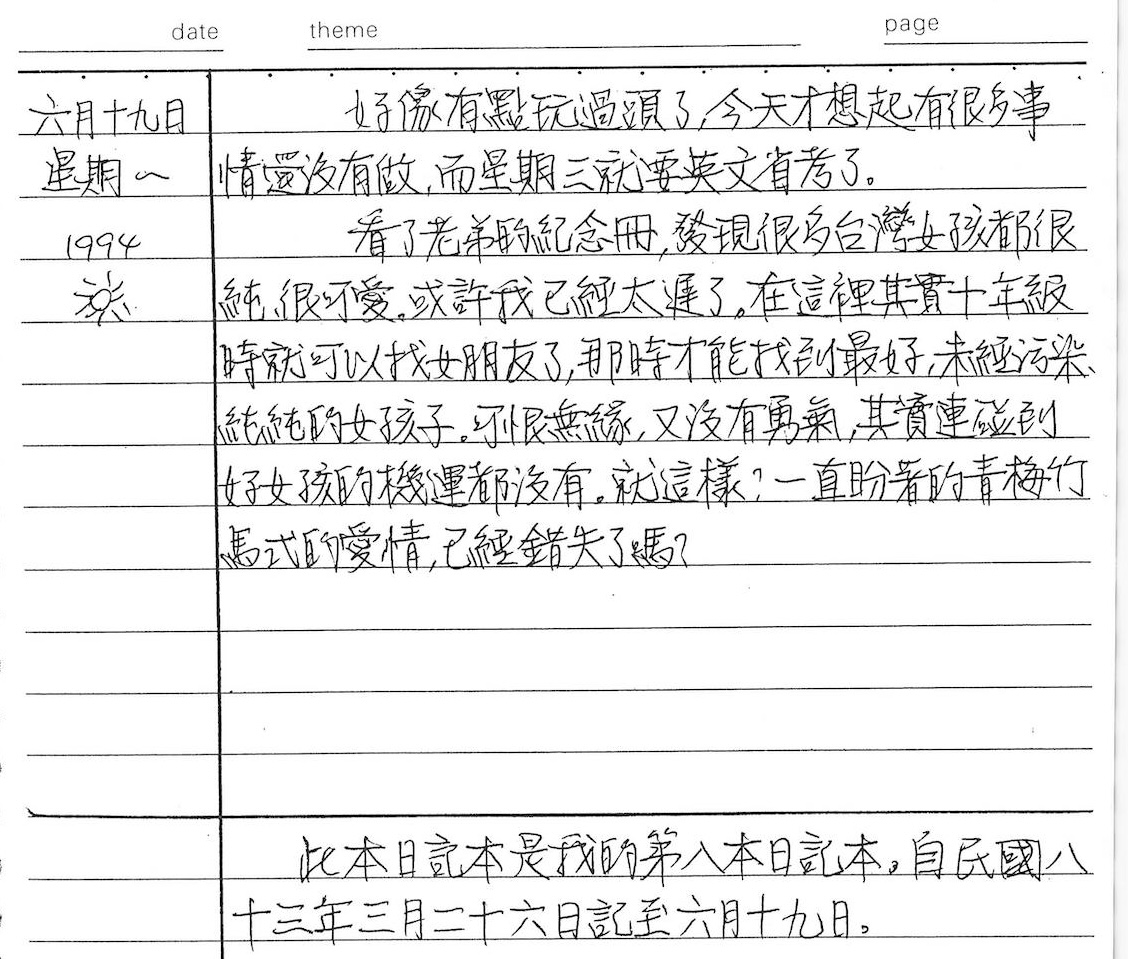 date theme page
六月十九日
星期一
1994
好像有點玩過頭了,今天才想起有很多事
情還沒有做,而星期三就要英文省考了。
看了老弟的紀念冊,發現很多台灣女孩都很
純、很可愛。或許我已經太遲了。在這裡其實十年級
時就可以找女朋友了,那時才能找到最好,未經污染、
純純的女孩子。可恨無緣,又沒有勇氣,其實連碰到
好女孩的機運都沒有。就這樣?一直盼著的青梅竹
馬式的愛情,已經錯失了嗎?
此本日記本是我的第八本日記本。自民國八
十三年三月二十六日記至六月十九日。